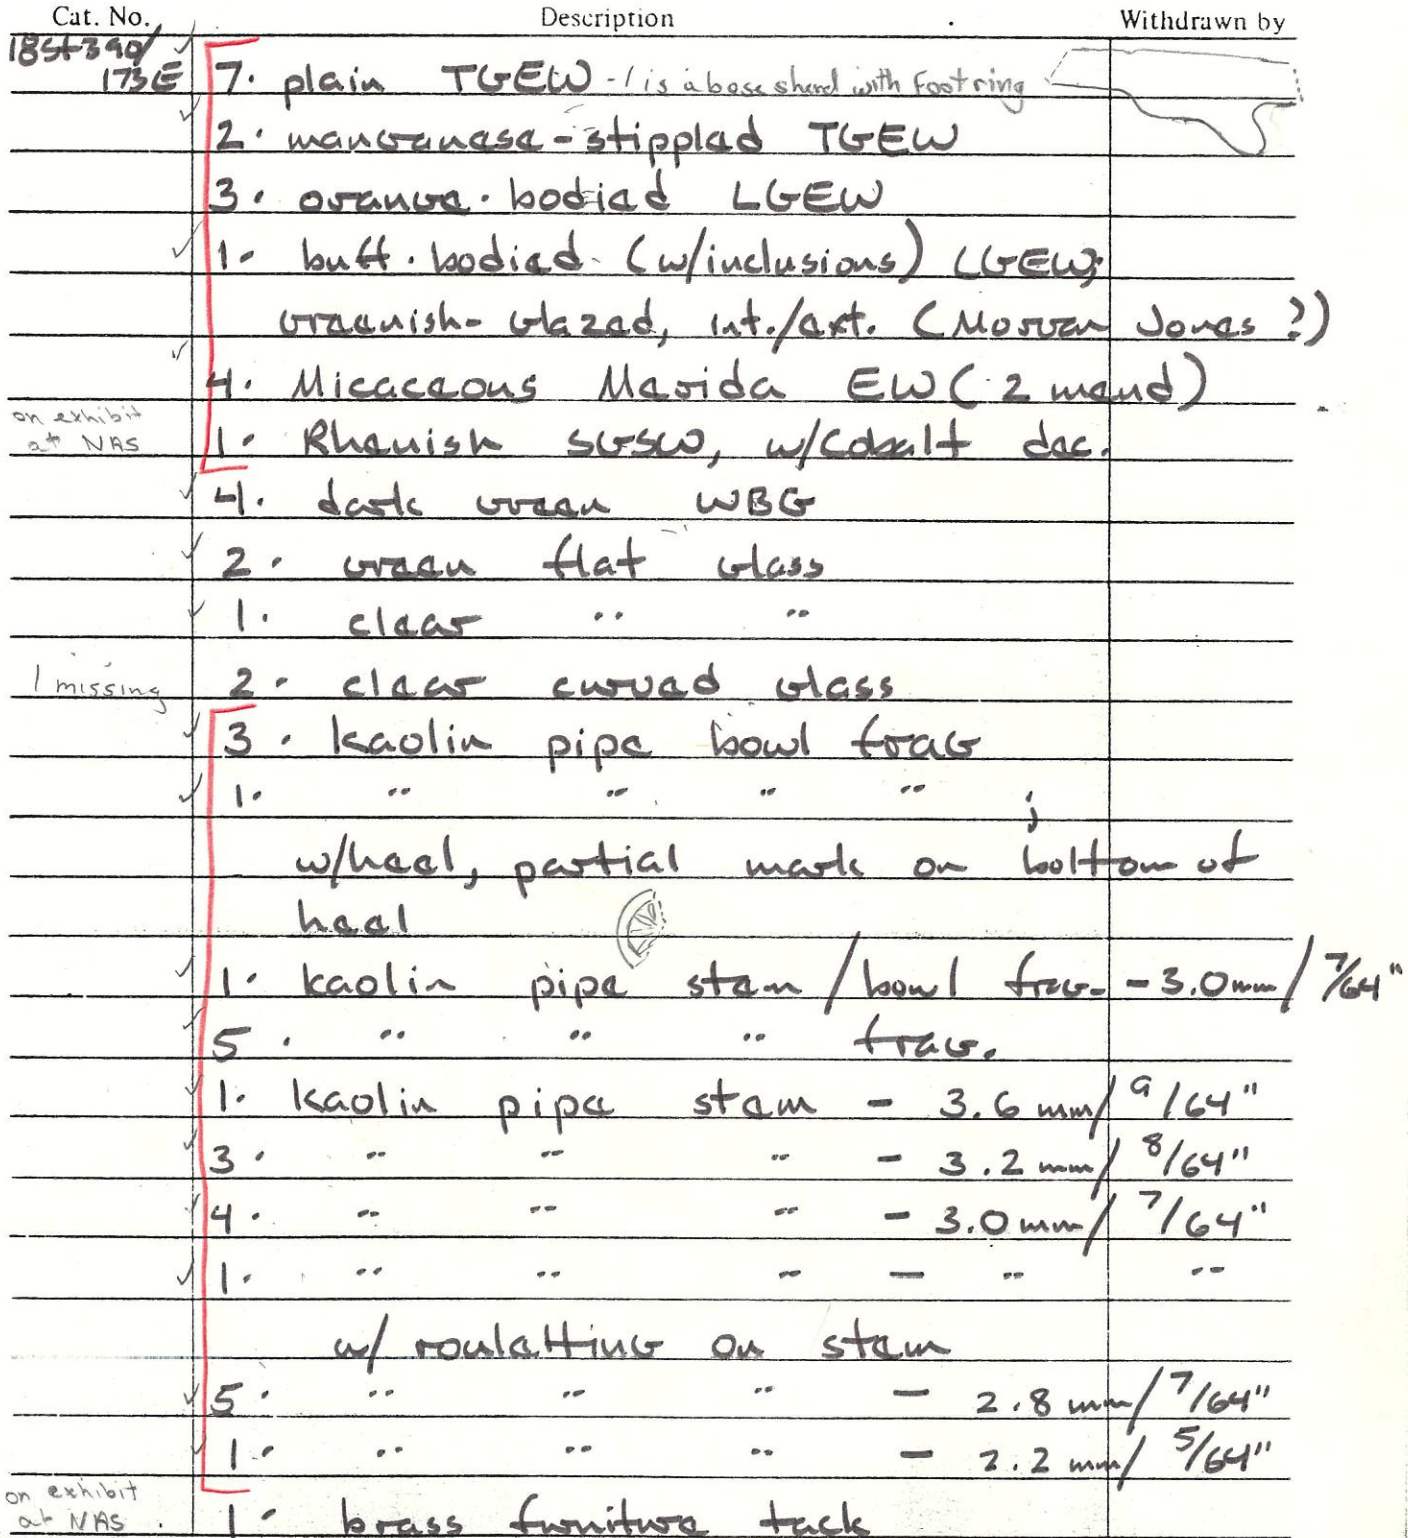 Cat. No. Description Withdrawn by
18St390/
173E 7. plain TGEW - 1 is a base sherd with footring
2. manganese-stippled TGEW
3. orange-bodied LGEW
1. buff-bodied (w/inclusions) LGEW;
greenish-glazed, int./ext. (Morgan Jones ?)
4. Micaceous Merida EW (2 mend)
on exhibit
at NAS 1. Rhenish SGSW, w/Cobalt dec.
4. dark green WBG
2. green flat glass
1. clear " "
1 missing 2. clear curved glass
3. kaolin pipe bowl frag
1. " " " " ;
w/heel, partial mark on bottom of
heel
1. kaolin pipe stem/bowl frag. - 3.0mm/ 7/64"
5. " " " frag.
1. kaolin pipe stem - 3.6 mm/ 9/64"
3. " " " - 3.2 mm/ 8/64"
4. " " " - 3.0 mm/ 7/64"
1. " " " - " "
w/ rouletting on stem
5. " " " - 2.8 mm/ 7/64"
1. " " " - 2.2 mm/ 5/64"
on exhibit
at NAS. 1. brass furniture tack